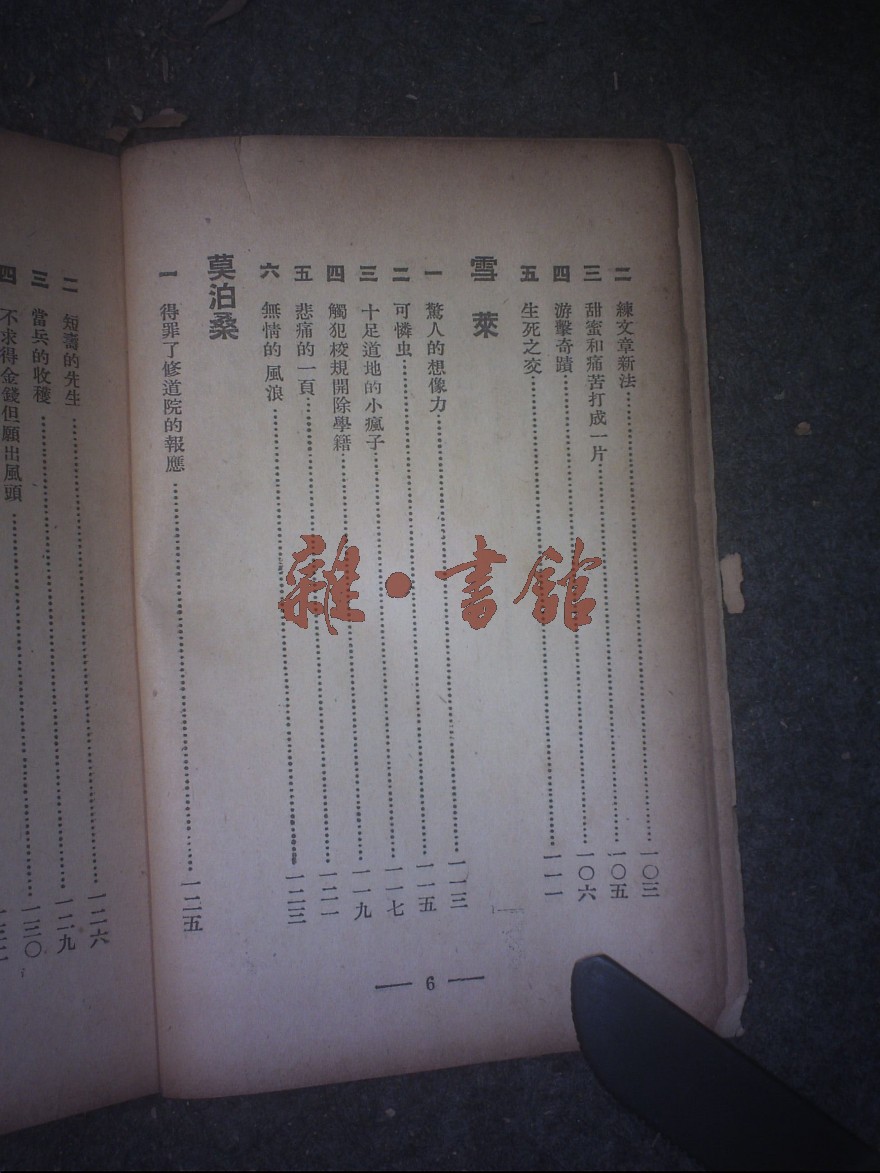 二 練文章新法……一〇三
三 甜蜜和痛苦打成一片……一〇五
四 游擊奇蹟……一〇六
五 生死之交……一一一
雪萊
一 驚人的想像力……一一三
二 可憐虫……一一五
三 十足道地的小瘋子……一一七
四 觸犯校規開除學籍……一一九
五 悲痛的一頁……一二一
六 無情的風浪……一二三
莫泊桑
一 得罪了修道院的報應……一二五
— 6 —
二 短濤的先生……一二六
三 當兵的收穫……一二九
四 不求得金錢但願出風頭……一三〇
雜·書館